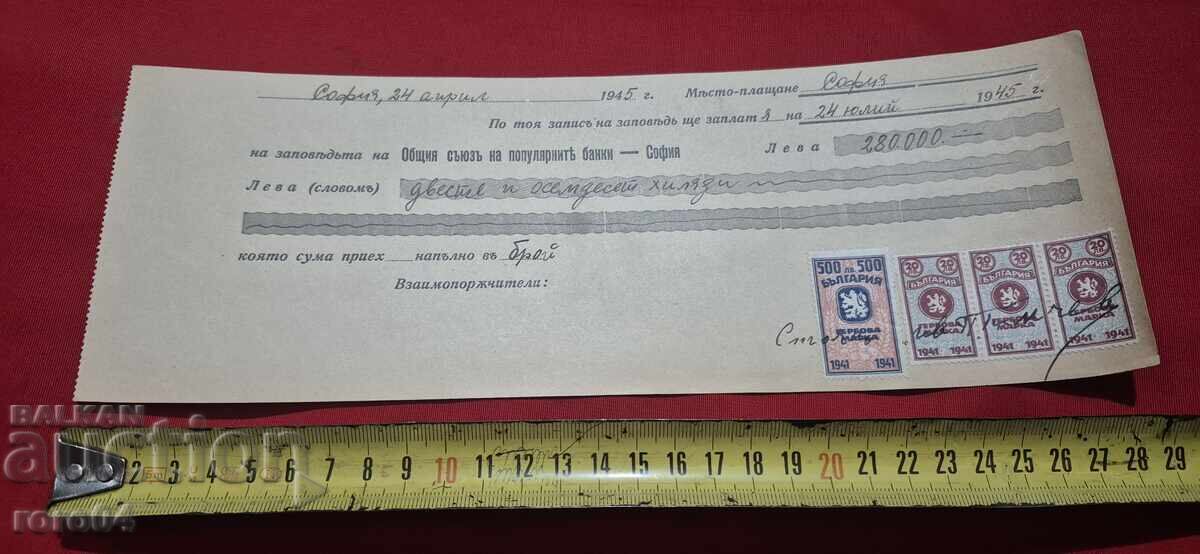 София, 24 април 1945 г. Мѣсто-плащане София
По тоя записъ на заповѣдь ще заплатя на 24 юлий 1945 г.
на заповѣдьта на Общия съюзъ на популярнитѣ банки — София Лева 280.000.—
Лева (словомъ) двесте и осемдесет хиляди
която сума приех напълно въ брой
Взаимопоржчители:
500 лв. 500
БЪЛГАРИЯ
ГЕРБОВА
МАРКА
1941 1941
20 лв. 20 лв.
БЪЛГАРИЯ
ГЕРБОВА
МАРКА
1941 1941
20 лв. 20 лв.
БЪЛГАРИЯ
ГЕРБОВА
МАРКА
1941 1941
20 лв. 20 лв.
БЪЛГАРИЯ
ГЕРБОВА
МАРКА
1941 1941
BALKAN
auction
roro04
2 3 4 5 6 7 8 9 10 11 12 13 14 15 16 17 18 19 20 21 22 23 24 25 26 27 28 29